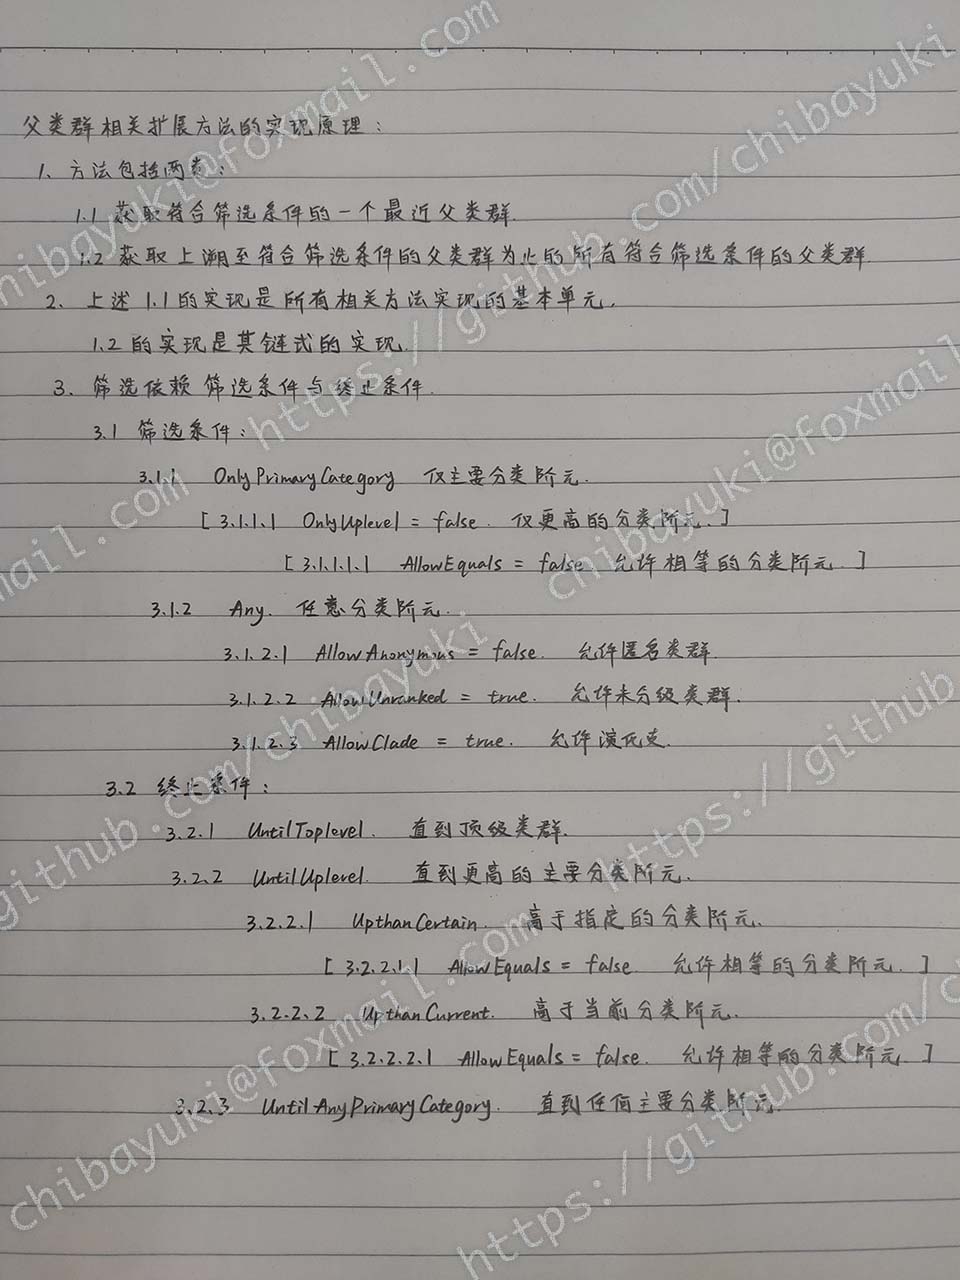 父类群相关扩展方法的实现原理：
1、方法包括两类：
1.1 获取符合筛选条件的一个最近父类群.
1.2 获取上溯至符合筛选条件的父类群为止的所有符合筛选条件的父类群.
2、上述1.1的实现是所有相关方法实现的基本单元.
1.2的实现是其链式的实现.
3、筛选依赖筛选条件与终止条件.
3.1 筛选条件：
3.1.1 OnlyPrimaryCategory 仅主要分类阶元.
[ 3.1.1.1 OnlyUplevel = false. 仅更高的分类阶元. ]
[ 3.1.1.1.1 AllowEquals = false. 允许相等的分类阶元. ]
3.1.2 Any. 任意分类阶元.
3.1.2.1 AllowAnonymous = false. 允许匿名类群.
3.1.2.2 AllowUnranked = true. 允许未分级类群.
3.1.2.3 AllowClade = true. 允许演化支.
3.2 终止条件：
3.2.1 UntilToplevel. 直到顶级类群.
3.2.2 UntilUplevel. 直到更高的主要分类阶元.
3.2.2.1 UpthanCertain. 高于指定的分类阶元.
[ 3.2.2.1.1 AllowEquals = false. 允许相等的分类阶元. ]
3.2.2.2 UpthanCurrent. 高于当前分类阶元.
[ 3.2.2.2.1 AllowEquals = false. 允许相等的分类阶元. ]
3.2.3 UntilAnyPrimaryCategory. 直到任何主要分类阶元.
chibayuki@foxmail.com
https://github.com/chibayuki
chibayuki@foxmail.com
https://github.com/chibayuki
chibayuki@foxmail.com
https://github
https://github.com/c